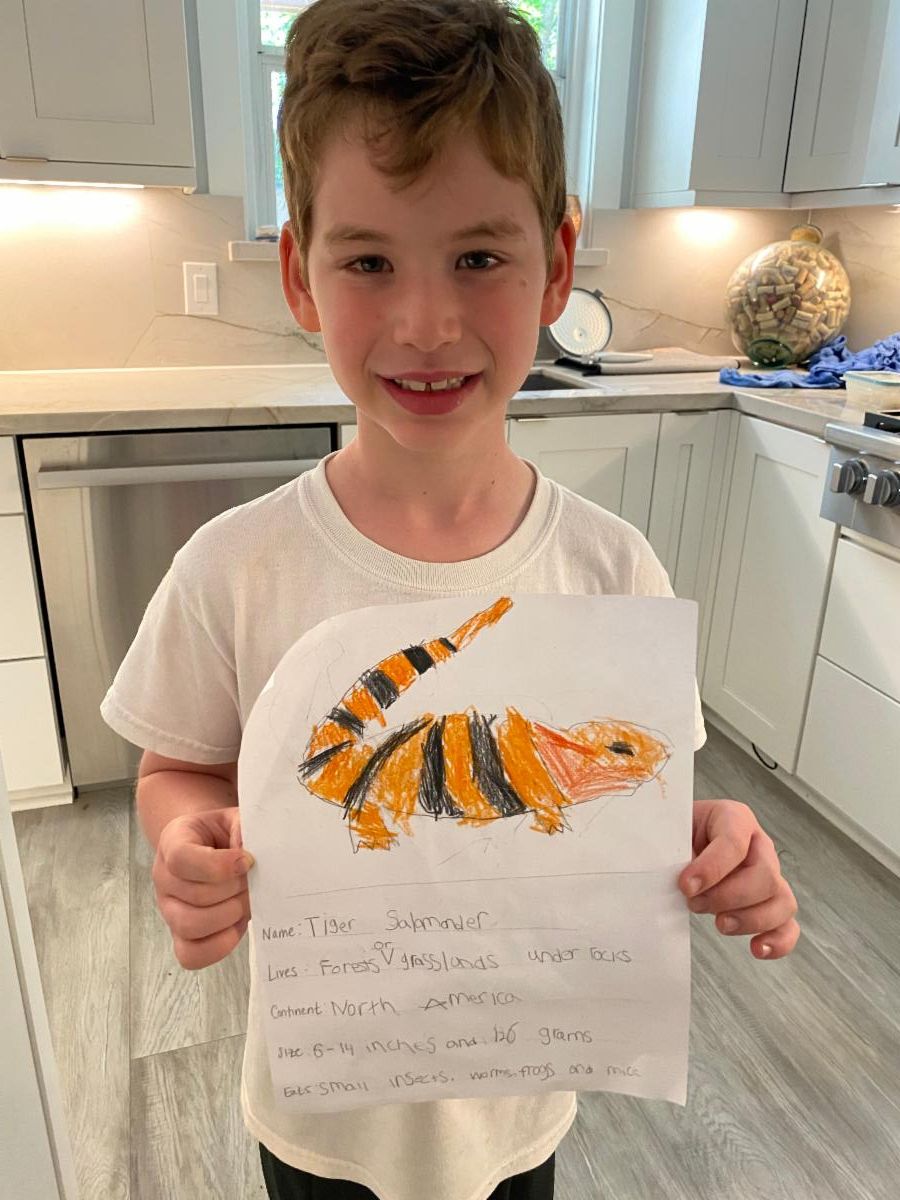 Name: Tiger Salamander
Lives: Forests or grasslands under rocks
Continent: North America
Size: 6-14 inches and 126 grams
Eats: Small insects, worms, frogs and mice